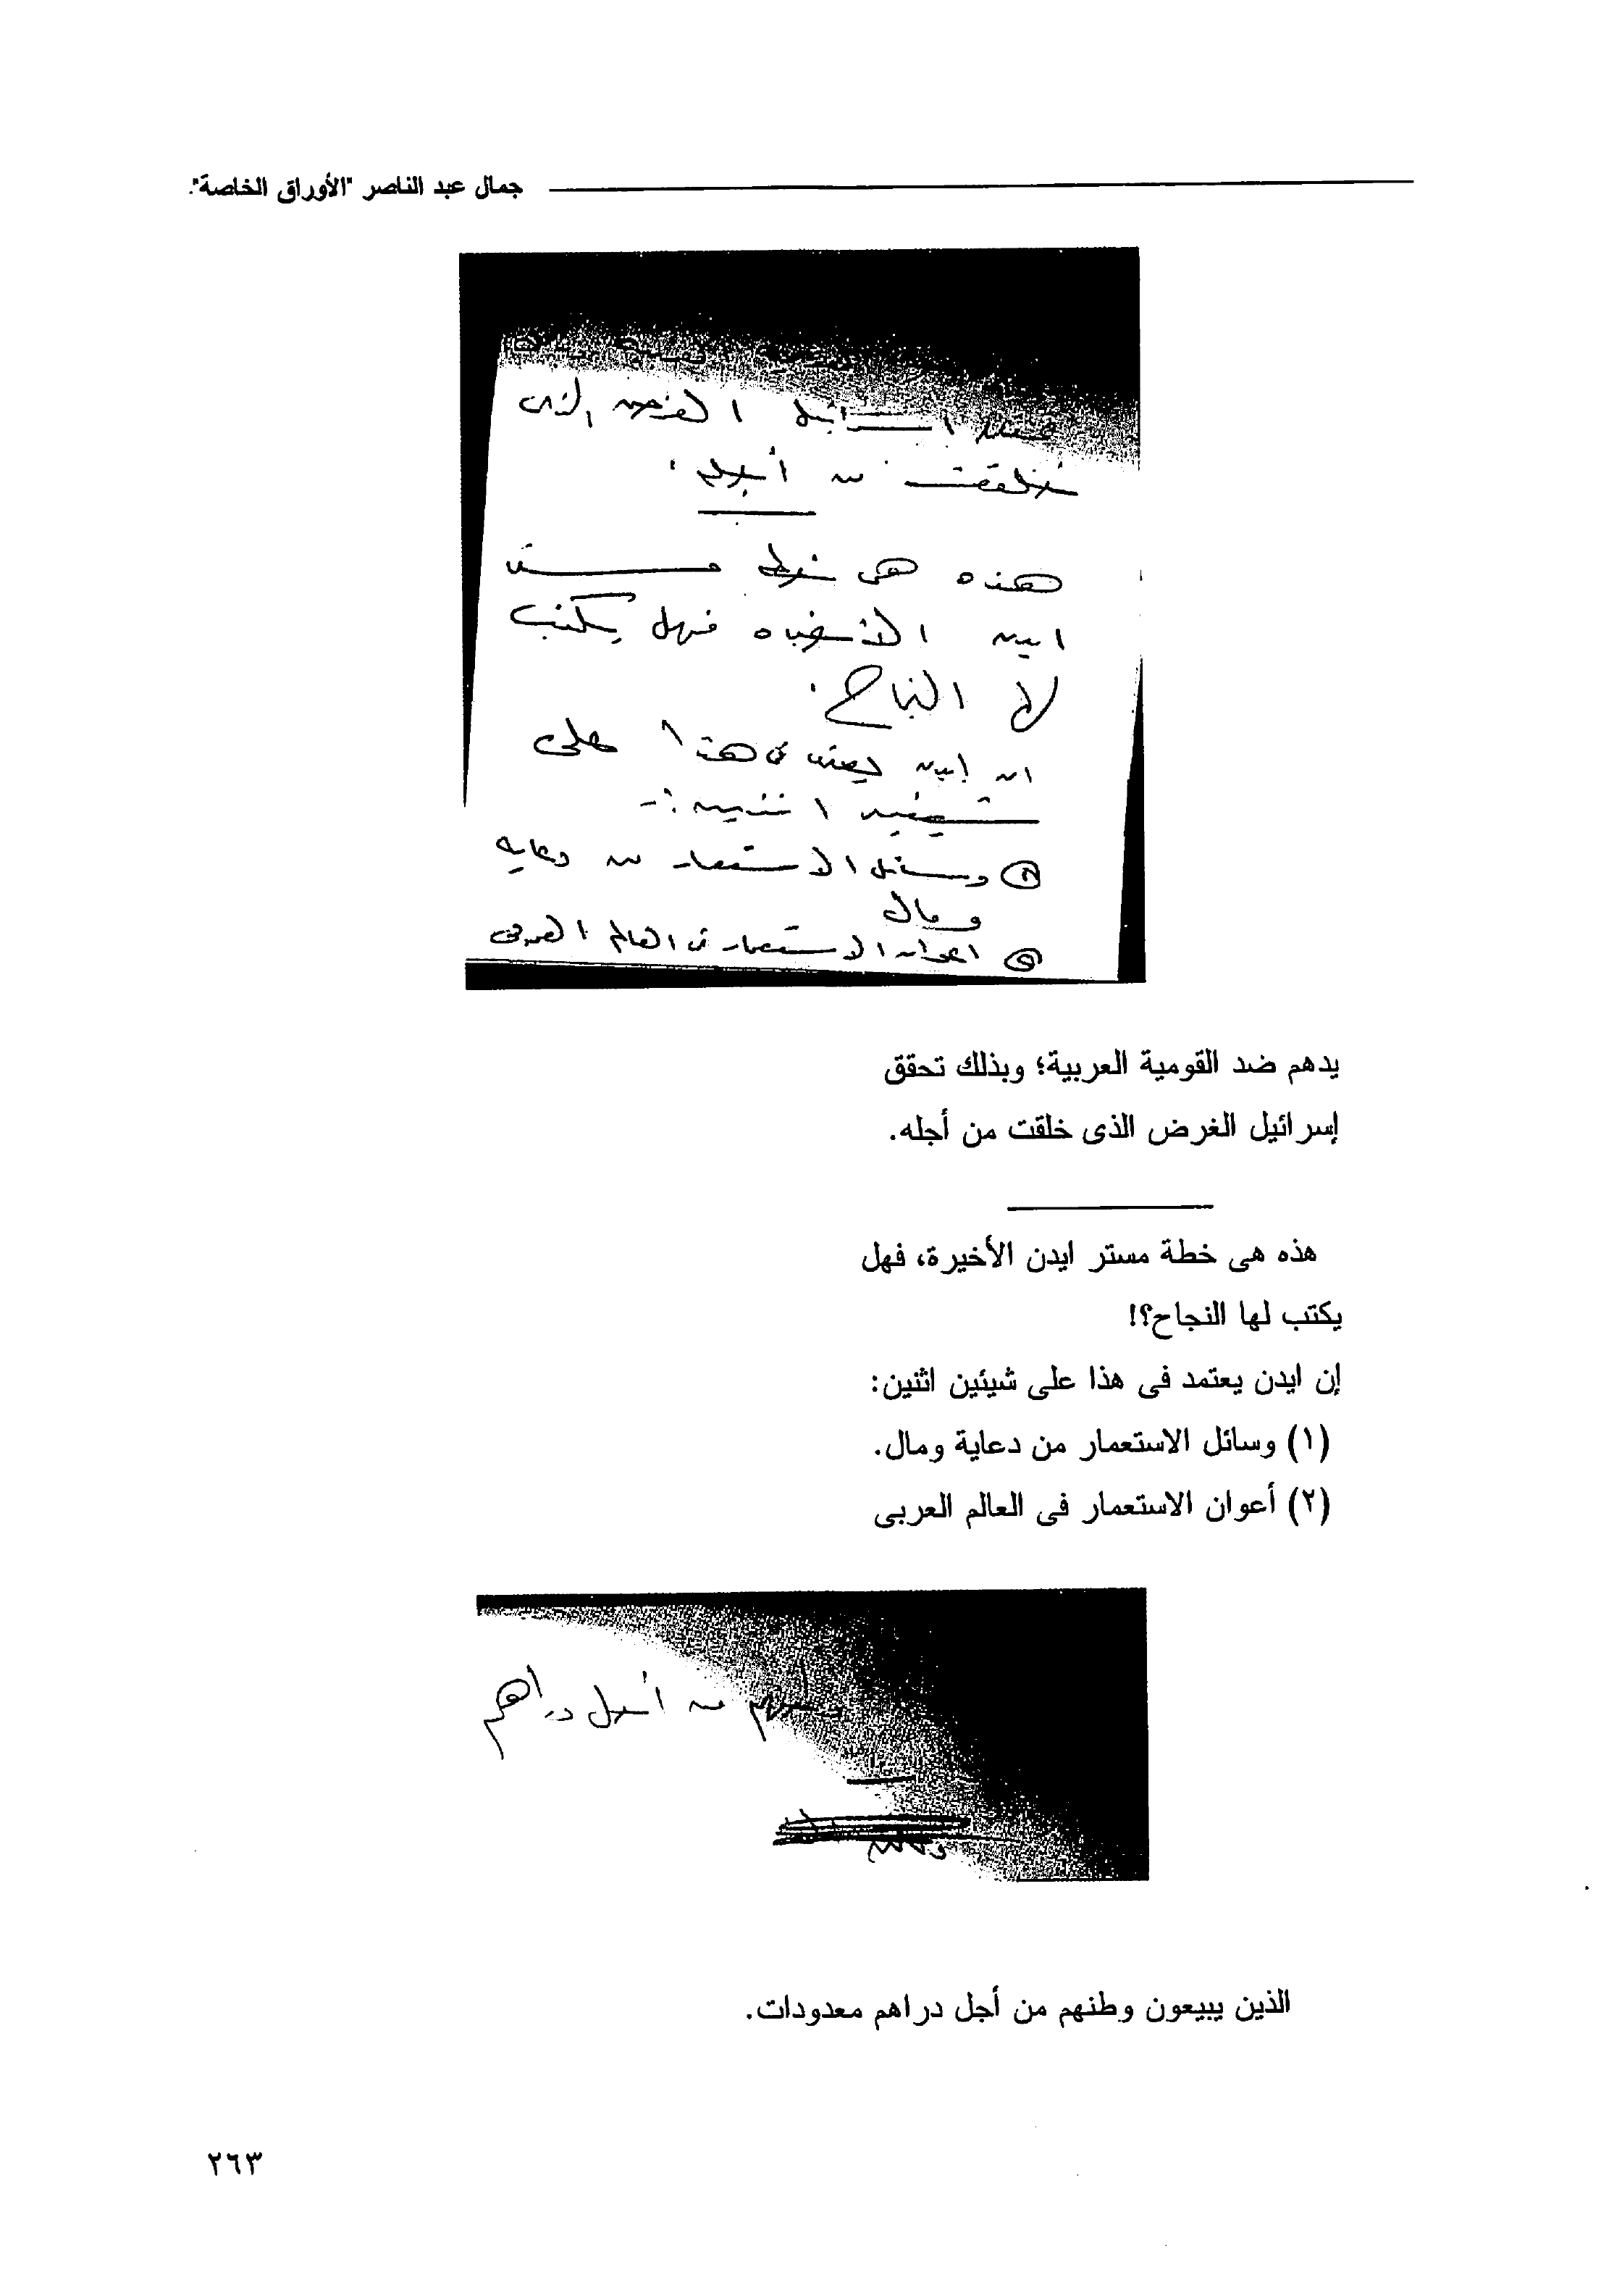 جمال عبد الناصر "الأوراق الخاصة".
اسرائيل الغرض الذى
خلقت من أجله .
هذه هى خطة مستر
ايدن الأخيره فهل يكتب
لها النجاح .
ان ايدن يعتمد فى هذا على
شيئين اثنين :-
(١) وسائل الاستعمار من دعايه
ومال
(٢) اعوان الاستعمار فى العالم العربى
يدهم ضد القومية العربية؛ وبذلك تحقق
إسرائيل الغرض الذى خلقت من أجله.
هذه هى خطة مستر ايدن الأخيرة، فهل
يكتب لها النجاح؟!
إن ايدن يعتمد فى هذا على شيئين اثنين:
(١) وسائل الاستعمار من دعاية ومال.
(٢) أعوان الاستعمار فى العالم العربى
وطنهم من أجل دراهم
الذين يبيعون وطنهم من أجل دراهم معدودات.
٢٦٣